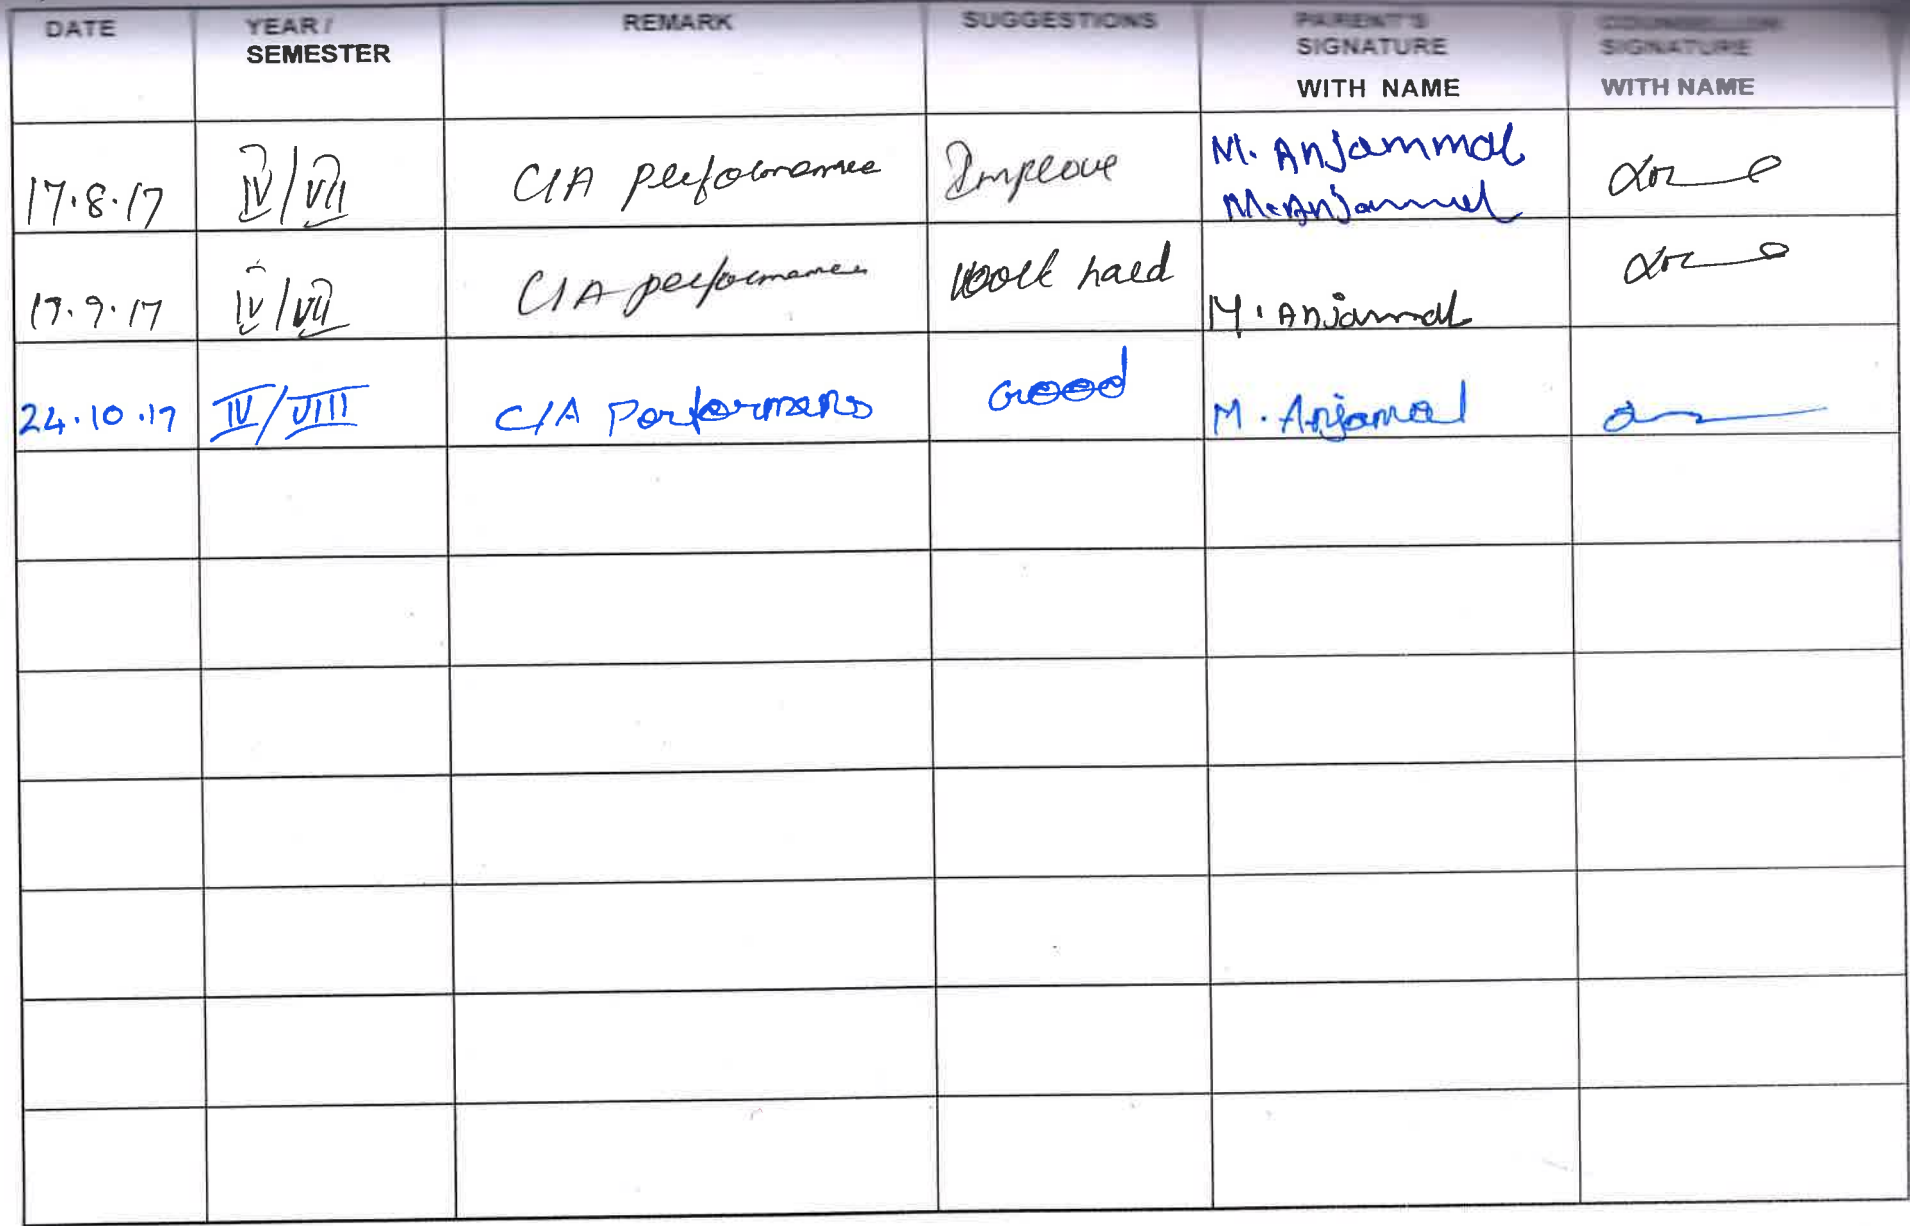 DATE YEAR / REMARK SUGGESTIONS PARENT'S COUNSELLOR
SEMESTER SIGNATURE SIGNATURE
WITH NAME WITH NAME
17.8.17 IV/VII CIA performance Improve M. Anjammal
M. Anjammal
17.9.17 IV/VII CIA performance Work hard M. Anjammal
24.10.17 IV/VIII CIA Performans Good M. Anjamal